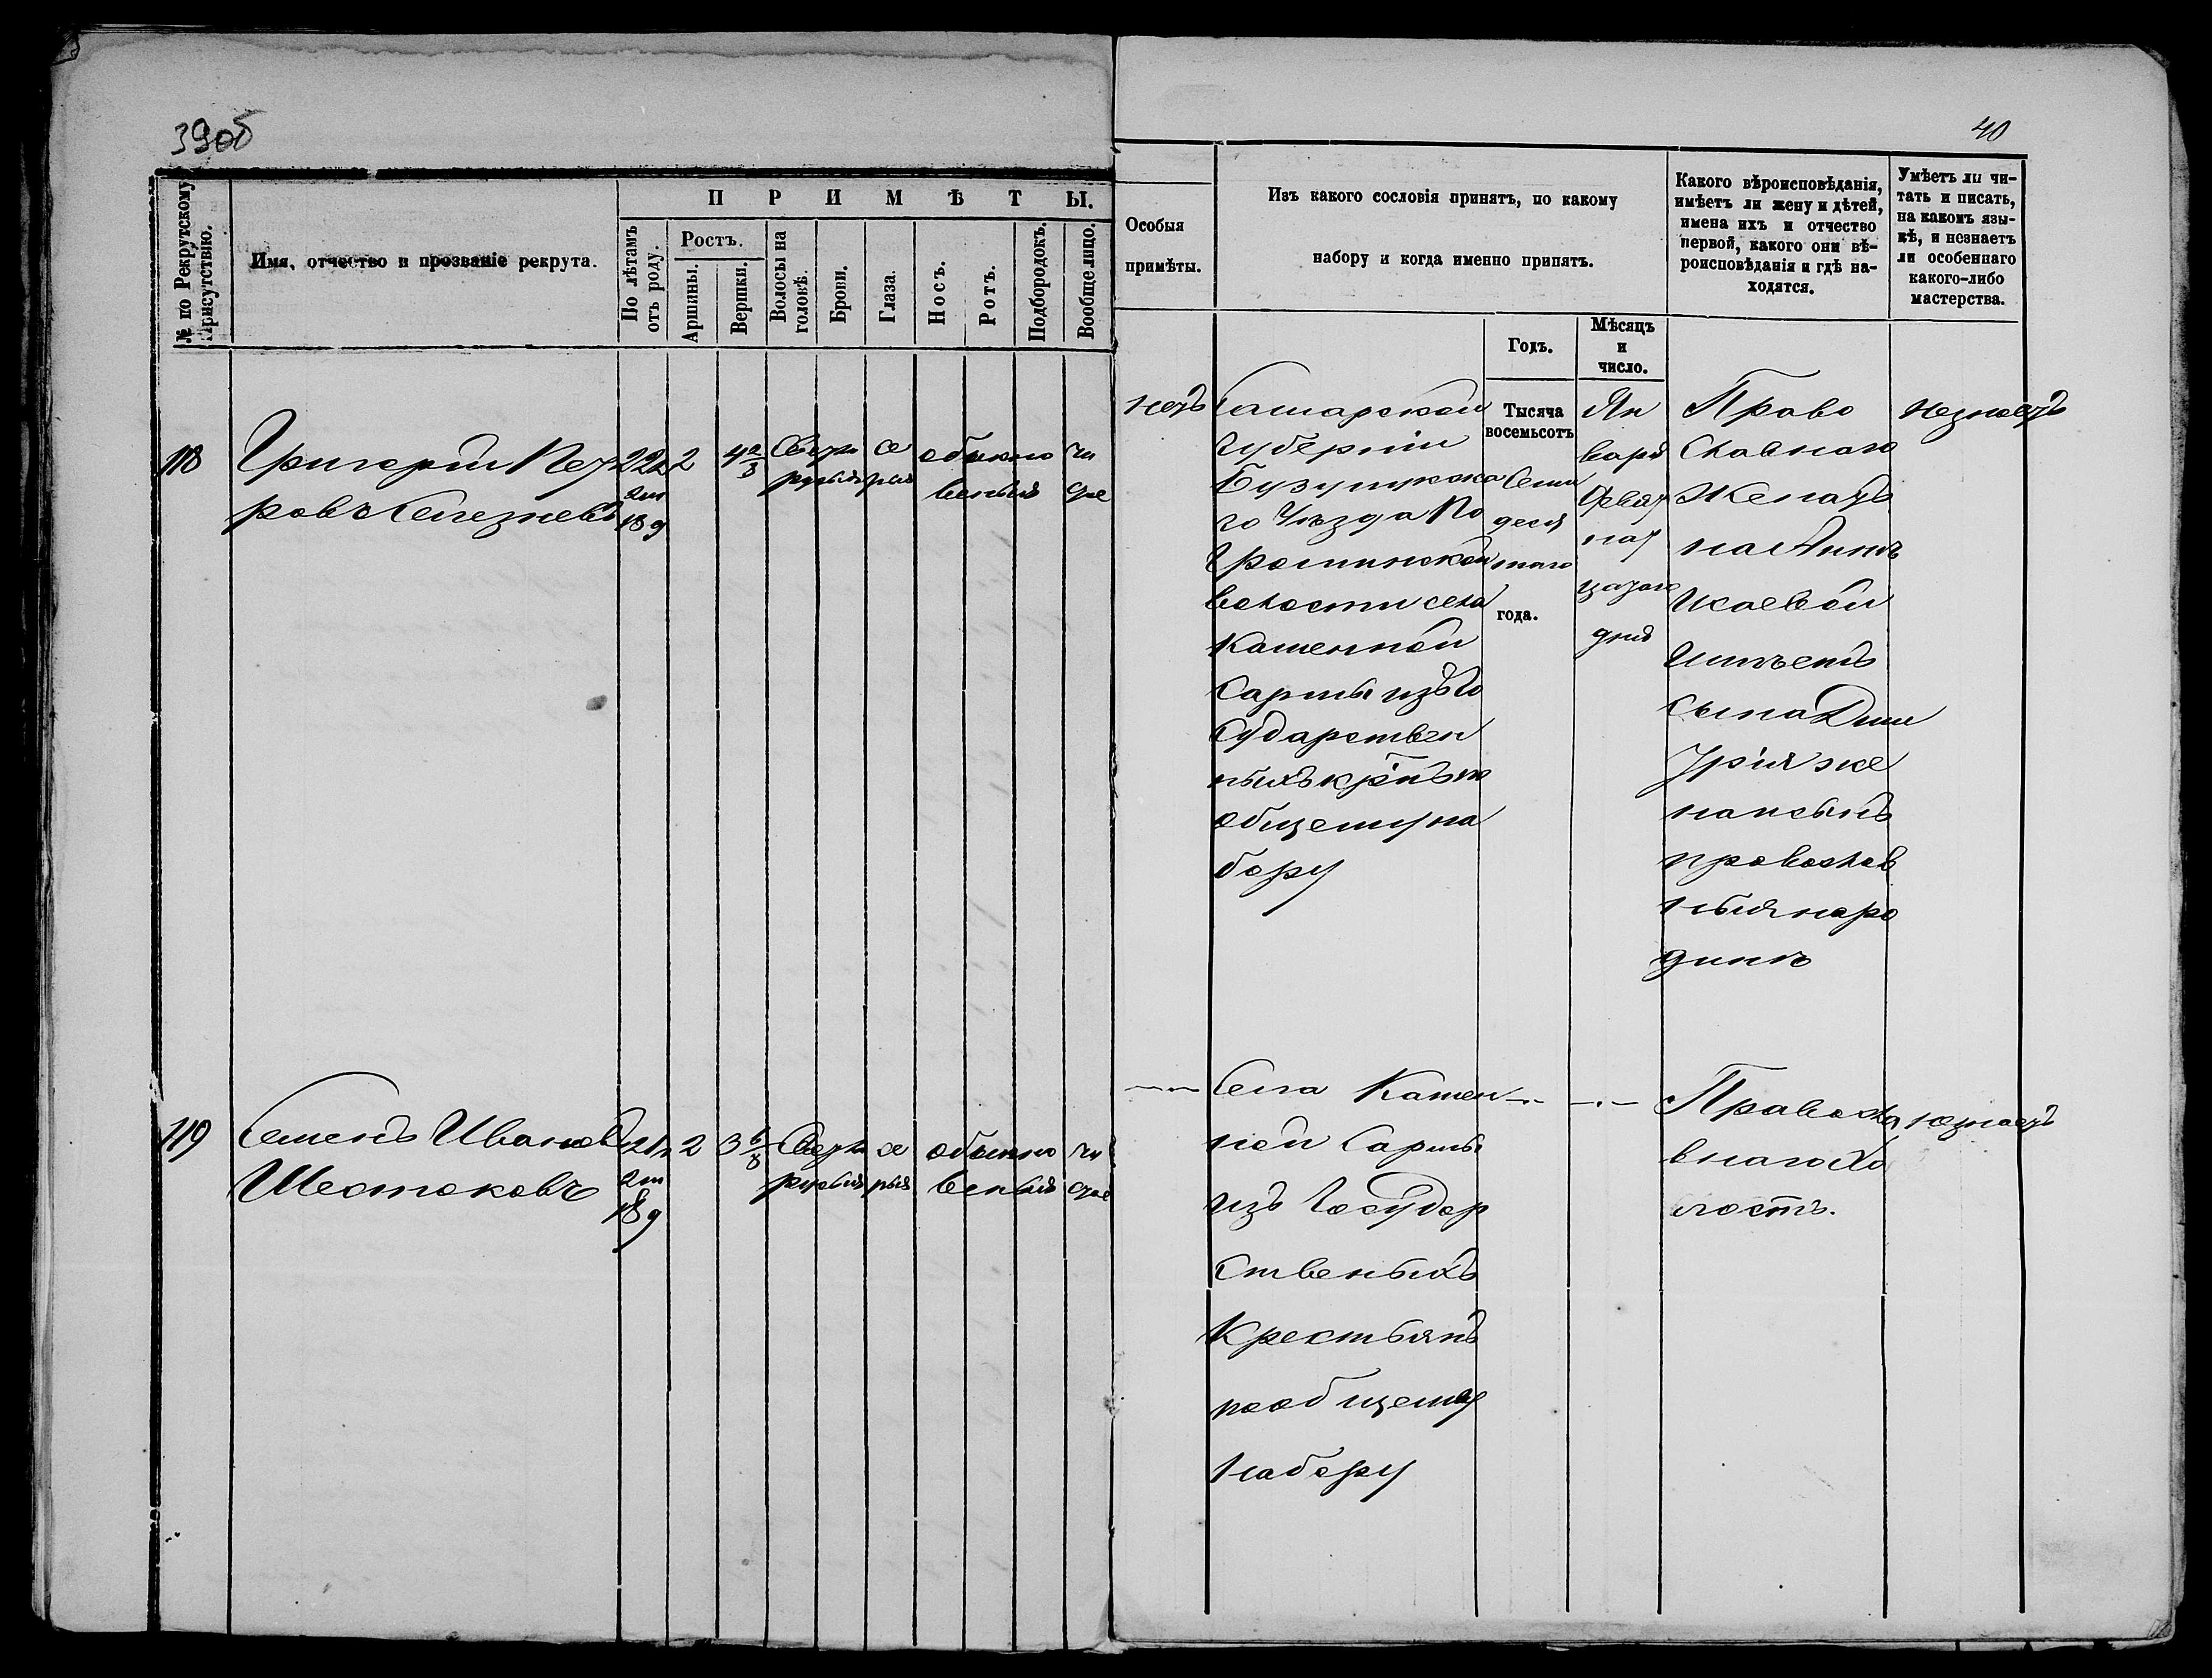 39об
40
№ по Рекрутскому
Присутствію.
Имя, отчество и прозваніе рекрута.
П Р И М Ѣ Т Ы.
По лѣтамъ
отъ роду.
Ростъ.
Аршины.
Вершки.
Волосы на
головѣ.
Брови.
Глаза.
Носъ.
Ротъ.
Подбородокъ.
Вообще лицо.
Особыя
примѣты.
Изъ какого сословія принятъ, по какому
набору и когда именно принятъ.
Годъ.
Мѣсяцъ
и
число.
Какого вѣроисповѣданія,
имѣетъ ли жену и дѣтей,
имена ихъ и отчество
первой, какого они вѣ-
роисповѣданія и гдѣ на-
ходятся.
Умѣетъ ли чи-
тать и писать,
на какомъ язы-
кѣ, и незнаетъ
ли особеннаго
какого-либо
мастерства.
118
Григорій Пет
ровъ Селезневъ
2
4 2/8
Свѣтло
русыя
се
рыя
обыкно
венный
чи
стое
нетъ
Самарской
Губерніи
Бузулукска
го Уѣзда По
громинской
волости села
Каменной
Сармы изъ Го
сударствен
ныхъ крнъ по
общему на
бору
Тысяча
восемьсотъ
Семи
деся
таго
года.
Ян
варя
двѣнат
дня
Право
Славнаго
Женатъ
на Аннѣ
Исаевой
Имѣетъ
сына Дми
трія же
на и сынъ
православ
ныя на ро
динѣ
незнаетъ
119
Семенъ Ивановъ
Шестаковъ
2
3 6/8
Свѣтло
русыя
се
рыя
обыкно
венный
чи
стое
Села Камен
ной Сармы
изъ Государ
ственыхъ
Крестьянъ
по общему
набору
Правосла
внаго Хо
лостъ.
незнаетъ